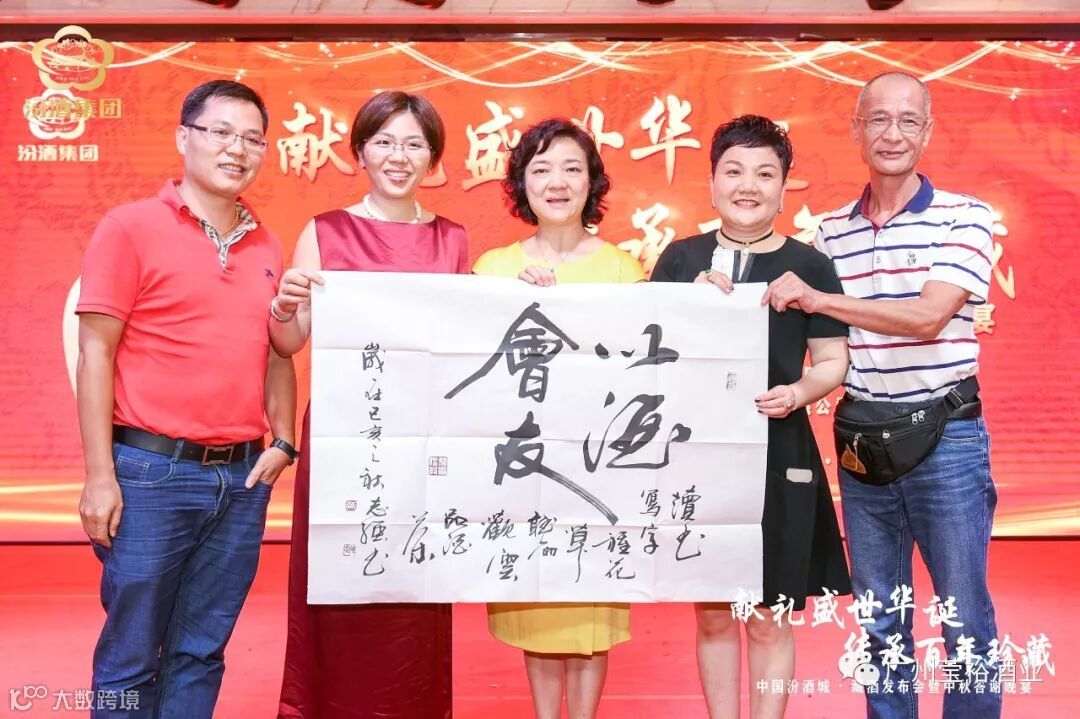 汾酒集团
汾酒集团
献礼盛世华
承百年
宴
以酒
會友
讀書
寫字
種花
草
聽雨
觀雲
品酒
茶
歲在己亥之秋志强书
献礼盛世华诞
传承百年珍藏
中国汾酒城·藏酒发布会暨中秋答谢晚宴
广州宝裕酒业
大数跨境